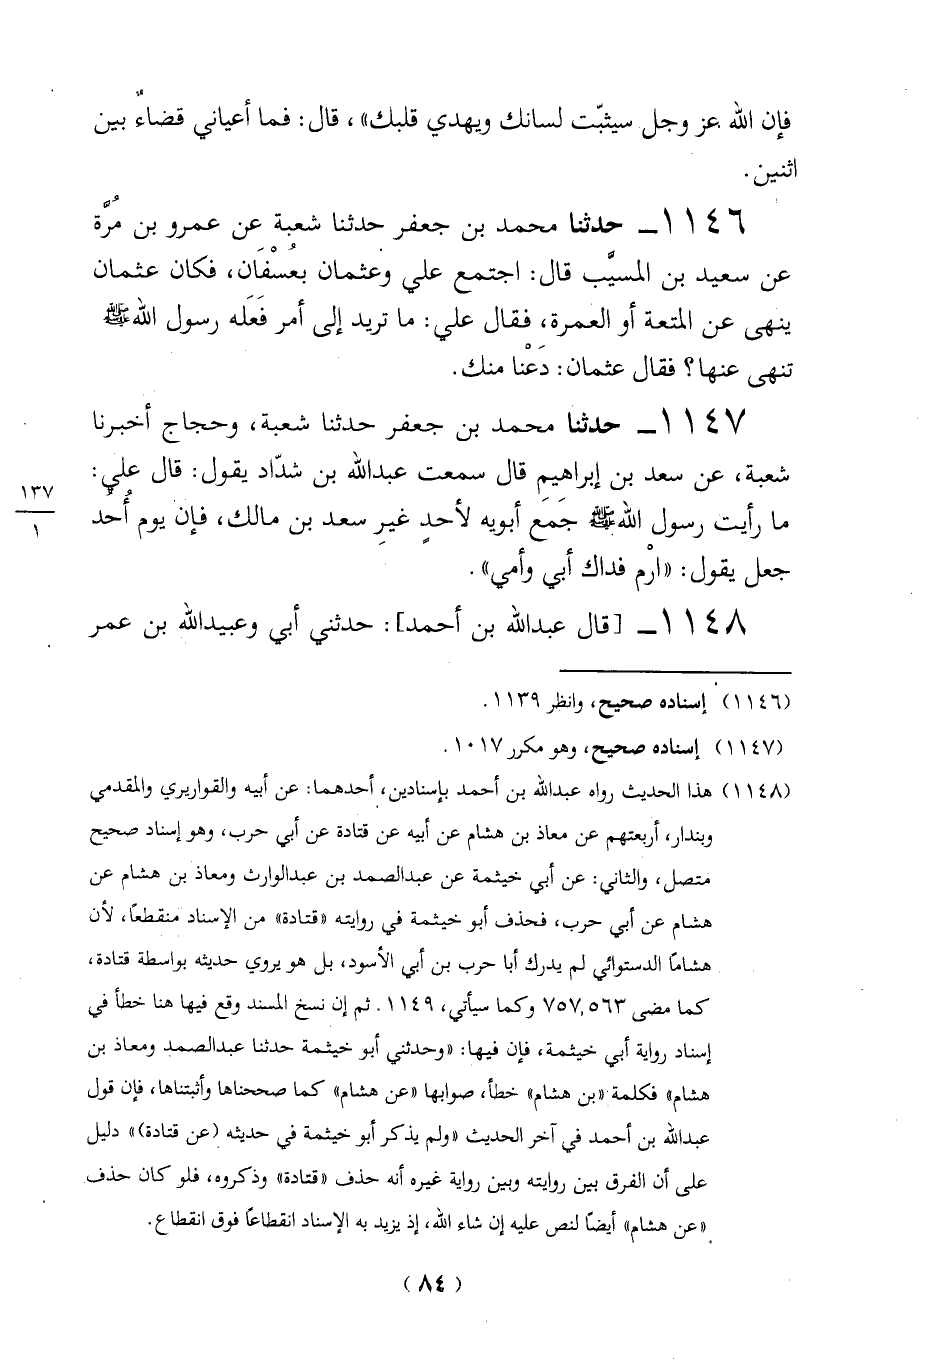 فإن الله عز وجل سيثبّت لسانك ويهدي قلبك»، قال: فما أعياني قضاءٌ بين
اثنين.
١١٤٦ ـ حدثنا محمد بن جعفر حدثنا شعبة عن عمرو بن مُرَّة
عن سعيد بن المسيَّب قال: اجتمع علي وعثمان بعُسْفَان، فكان عثمان
ينهى عن المتعة أو العمرة، فقال علي: ما تريد إلى أمر فَعَله رسول الله ﷺ
تنهى عنها؟ فقال عثمان: دَعْنا منك.
١١٤٧ ـ حدثنا محمد بن جعفر حدثنا شعبة، وحجاج أخبرنا
شعبة، عن سعد بن إبراهيم قال سمعت عبدالله بن شدّاد يقول: قال علي:
١٣٧
ما رأيت رسول الله ﷺ جَمَع أبويه لأحدٍ غيرِ سعد بن مالك، فإن يوم أُحُد
١
جعل يقول: «ارْم فداك أبي وأمي».
١١٤٨ ـ [قال عبدالله بن أحمد]: حدثني أبي وعبيدالله بن عمر
(١١٤٦) إسناده صحيح، وانظر ١١٣٩.
(١١٤٧) إسناده صحيح، وهو مكرر ١٠١٧.
(١١٤٨) هذا الحديث رواه عبدالله بن أحمد بإسنادين، أحدهما: عن أبيه والقواريري والمقدمي
وبندار، أربعتهم عن معاذ بن هشام عن أبيه عن قتادة عن أبي حرب، وهو إسناد صحيح
متصل، والثاني: عن أبي خيثمة عن عبدالصمد بن عبدالوارث ومعاذ بن هشام عن
هشام عن أبي حرب، فحذف أبو خيثمة في روايته «قتادة» من الإسناد منقطعًا، لأن
هشامًا الدستوائي لم يدرك أبا حرب بن أبي الأسود، بل هو يروي حديثه بواسطة قتادة،
كما مضى ٥٦٣، ٧٥٧ وكما سيأتي، ١١٤٩. ثم إن نسخ المسند وقع فيها هنا خطأ في
إسناد رواية أبي خيثمة، فإن فيها: «وحدثني أبو خيثمة حدثنا عبدالصمد ومعاذ بن
هشام» فكلمة «بن هشام» خطأ، صوابها «عن هشام» كما صححناها وأثبتناها، فإن قول
عبدالله بن أحمد في آخر الحديث «ولم يذكر أبو خيثمة في حديثه (عن قتادة)» دليل
على أن الفرق بين روايته وبين رواية غيره أنه حذف «قتادة» وذكروه، فلو كان حذف
«عن هشام» أيضًا لنص عليه إن شاء الله، إذ يزيد به الإسناد انقطاعًا فوق انقطاع.
(٨٤)